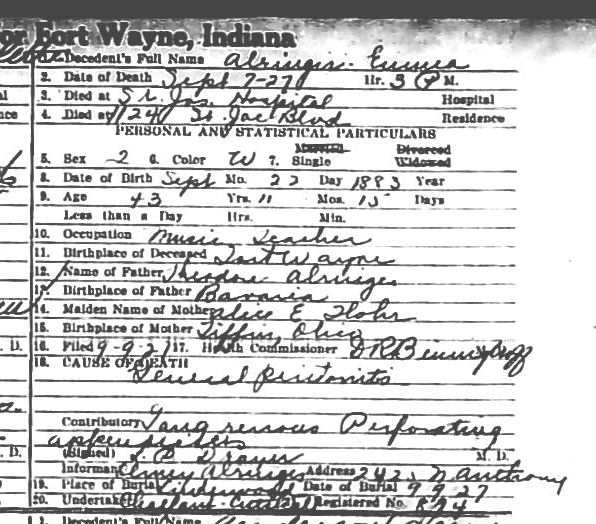 or Fort Wayne, Indiana
1. Decedent's Full Name Alringer Emma
2. Date of Death Sept 7-27 Hr. 3 P M.
3. Died at St. Jos. Hospital Hospital
4. Died at 1124 St Joe Blvd Residence
PERSONAL AND STATISTICAL PARTICULARS
5. Sex 2 6. Color W 7. Married Single Divorced Widowed
8. Date of Birth Sept Mo. 22 Day 1883 Year
9. Age 43 Yrs. 11 Mos. 15 Days
Less than a Day Hrs. Min.
10. Occupation Music Teacher
11. Birthplace of Deceased Fort Wayne
12. Name of Father Theodore
13. Birthplace of Father Bavaria
14. Maiden Name of Mother Alice E
15. Birthplace of Mother Tiffin Ohio
16. Filed 9-9-27 17. Health Commissioner
18. CAUSE OF DEATH
General Peritonitis
Contributory Gangrenous Perforating
appendicitis
(Signed) M. D.
Informant Address 242 N Anthony
19. Place of Burial Lindenwood Date of Burial 9 9 27
20. Undertaker Registered No. 824
1. Decedent's Full Name